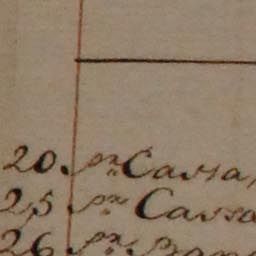 20. pr Cassa,
25 pr Cassa
26 pr